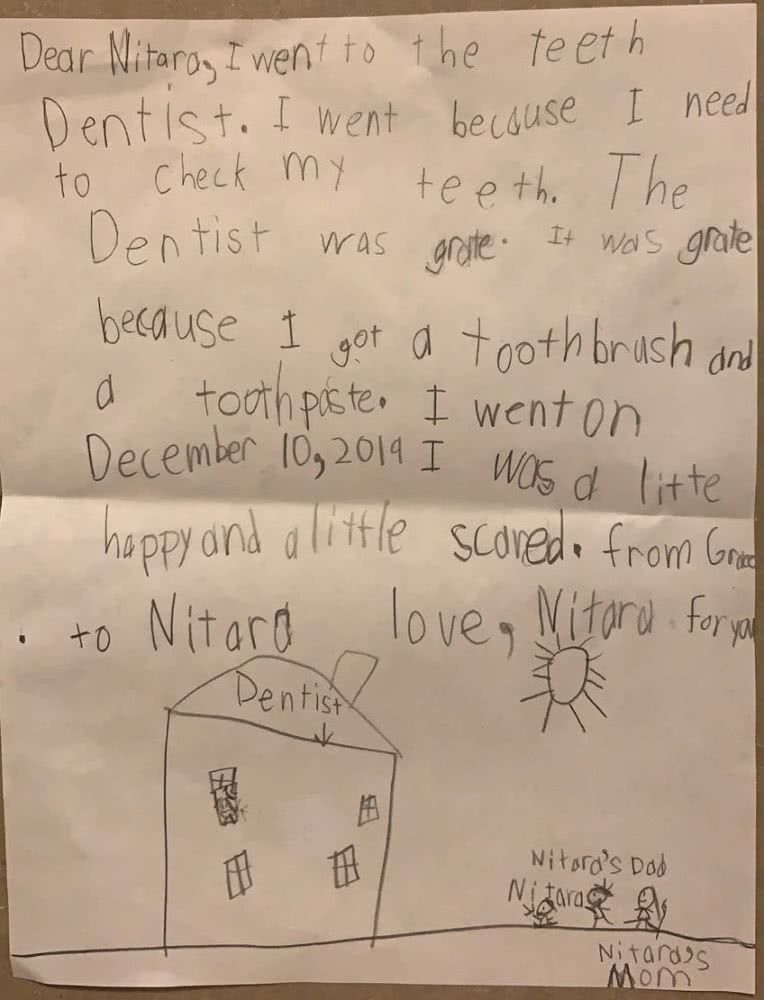 Dear Nitara, I went to the teeth
Dentist. I went because I need
to check my teeth. The
Dentist was grate. It was grate
because I got a toothbrush and
a toothpaste. I went on
December 10, 2019 I was a litte
happy and a little scared. from
. to Nitara love, Nitara for you
Dentist
Nitara's Dad
Nitara
Nitara's
Mom